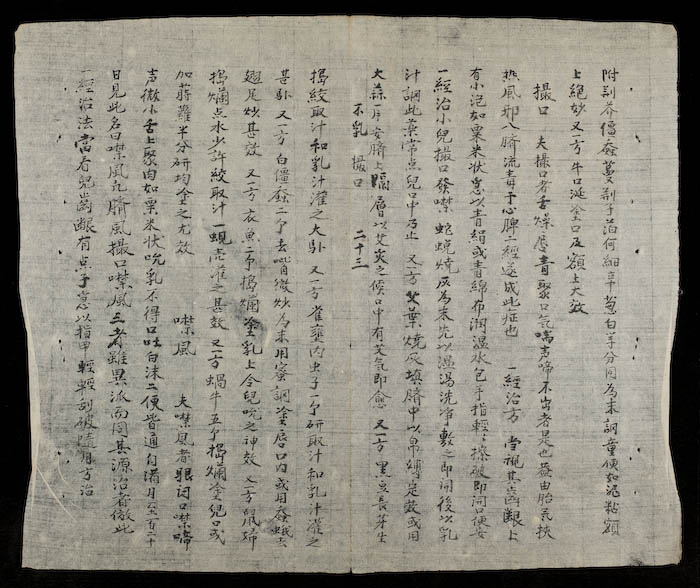 附剉芥僵蚕蔓荆子薄何細辛葱白等分同為末調童便如泥黏額
上絶妙又方牛口涎塗口及額上大效
撮口 夫撮口者舌燥唇青聚口氣喘声啼不出者是也蓋由胎氣挾
热風邪入臍流毒于心脾二經遂成此症也 一經治方 当視其歯齦上
有小泡如粟米状急以青絹或青綿布润温水包手指輕々擦破即开口便安
一經治小兒撮口發噤 蛇蛻燒灰為末先以温湯洗净敷之即开後以乳
汁調此藥常点兒口中乃止 又一方艾葉燒灰填臍中以帛縛定效或用
大蒜片安臍上隔層以艾灸之候口中有艾气即愈 又一方 黑豆長芽生
不乳 撮口 二十三
搗絞取汁和乳汁灌之大卧 又一方 雀甕内虫子一个研取汁和乳汁灌之
甚卧 又一方 白僵蚕二个去嘴微炒為末用蜜調塗唇口内或用蚕蛾去
翅足妙甚效 又一方 衣魚一个搗爛塗乳上令兒吮之神效 又一方 鼠婦
搗爛点水少許絞取汁一蜆壳灌之甚效 又一方 蝸牛五个搗爛塗兒口或
加蒔蘿半分研均塗之尤效 噤風 夫噤風者眼闭口噤啼
声微小舌上聚肉如粟米状吮乳不得口吐白沫二便皆通自满月至百二十
日見此名曰噤風凡臍風撮口噤風三者雖異派而同其源治者倣此
一經治法當看兒歯齦有点子急以指甲輕輕刮破隨月方治